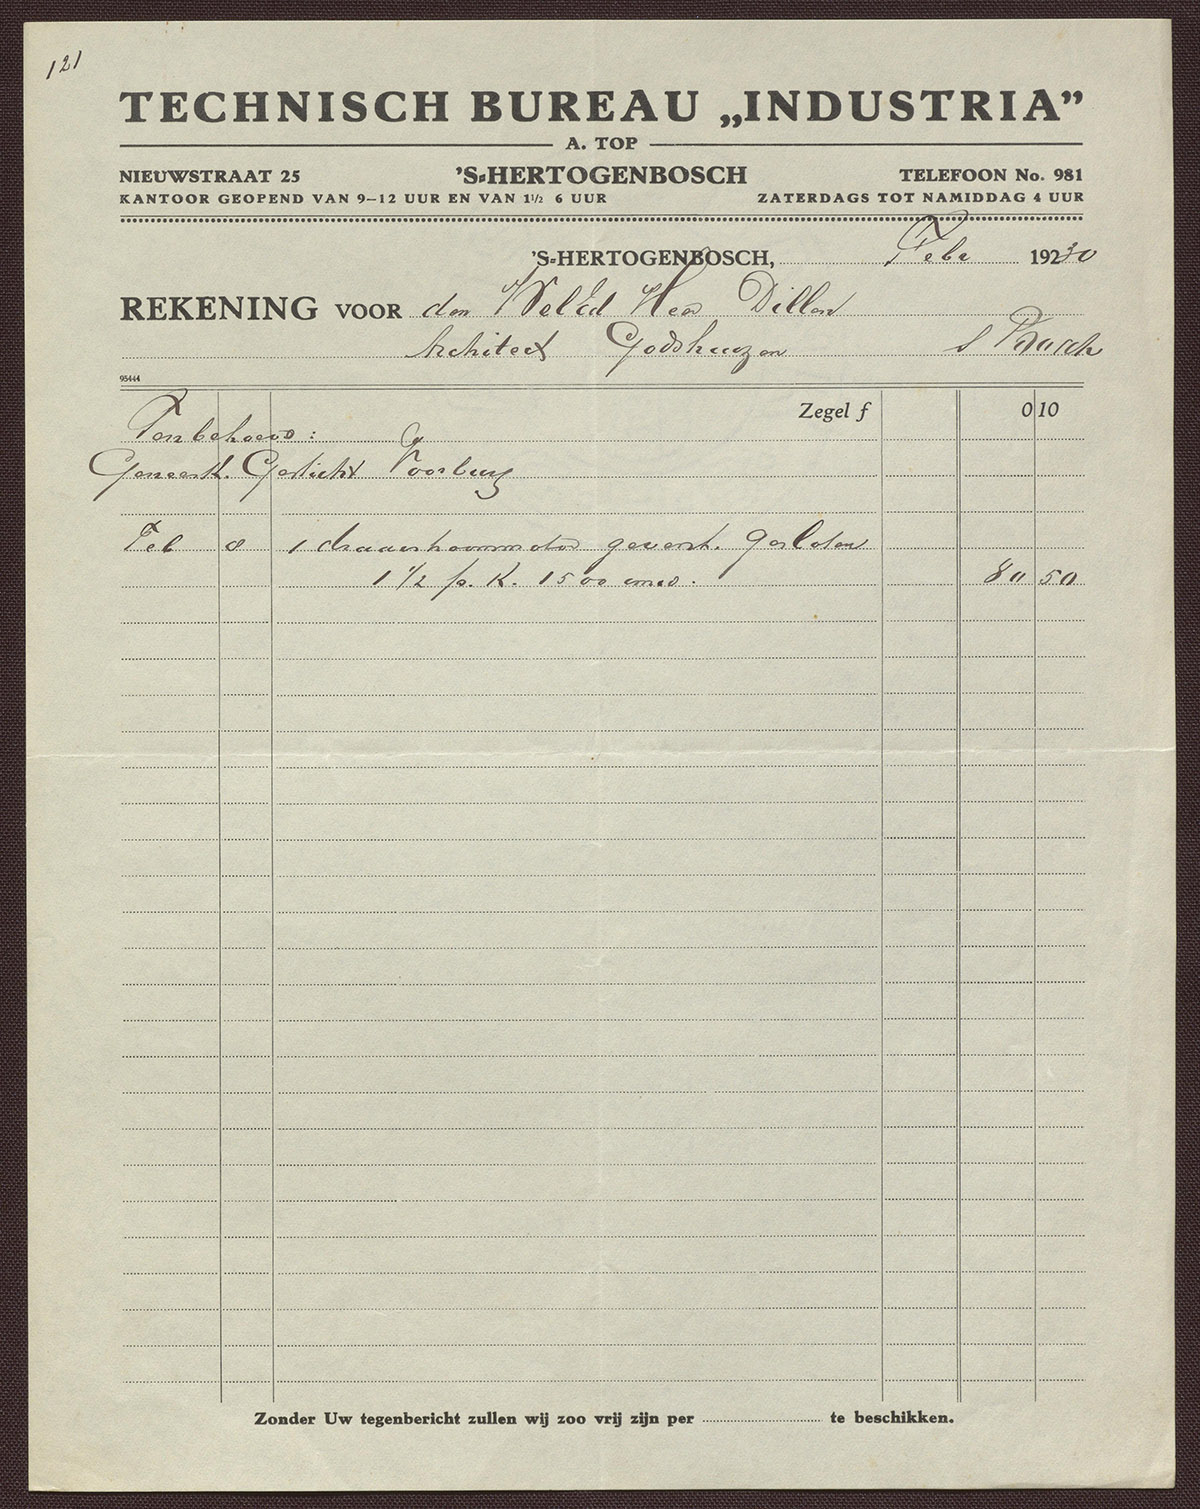 121
TECHNISCH BUREAU „INDUSTRIA”
A. TOP
NIEUWSTRAAT 25 'S-HERTOGENBOSCH TELEFOON No. 981
KANTOOR GEOPEND VAN 9–12 UUR EN VAN 1½ 6 UUR ZATERDAGS TOT NAMIDDAG 4 UUR
'S-HERTOGENBOSCH, Febr 19230
REKENING VOOR den WelEd Heer Dillen
Architect Godshuizen s Bosch
95444
Zegel f 0 10
Tenbehoeve :
Geneesk. Gesticht Voorburg
Feb 8 1 draaistroommotor gesloten
1 1/2 p. K. 1500 omw. 80 50
Zonder Uw tegenbericht zullen wij zoo vrij zijn per te beschikken.